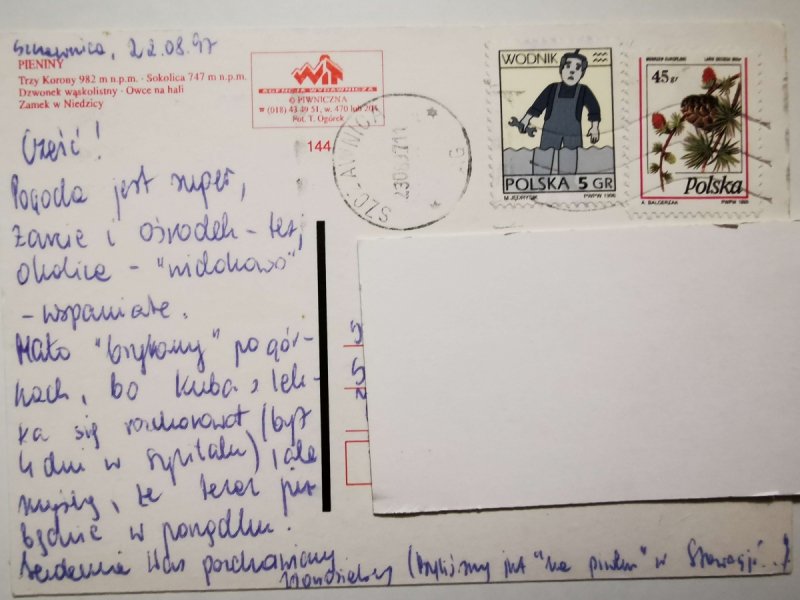 Szczawnica, 22.08.97
PIENINY
Trzy Korony 982 m n.p.m. · Sokolica 747 m n.p.m.
Dzwonek wąskolistny · Owce na hali
Zamek w Niedzicy
AGENCJA WYDAWNICZA
© PIWNICZNA
☎ (018) 43 49 51, w. 470 lub 204
Fot. T. Ogórek
144
WODNIK
POLSKA 5 GR
M. JĘDRYSIK PWPW 1996
45 gr
Polska
A. BALCERZAK PWPW
Cześć!
Pogoda jest super,
żarcie i ośrodek - też,
okolice - "widokowo"
- wspaniałe.
Mało "brykamy" po gór-
kach, bo Kuba z lek-
ka się rozchorował (był
4 dni w szpitalu), ale
myślę, że teraz już
będzie w porządku.
Serdecznie Was pozdrawiamy
(byliśmy już "na piwku" w Słowacji..)